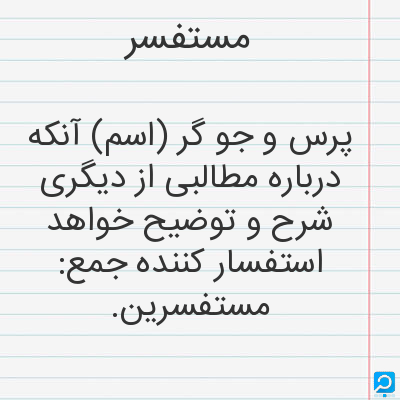 مستفسر
پرس و جو گر (اسم) آنکه
درباره مطالبی از دیگری
شرح و توضیح خواهد
استفسار کننده جمع:
مستفسرین.